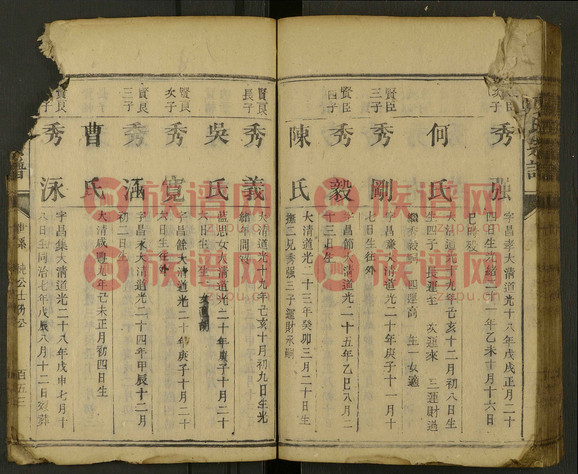 賢臣
次子
秀強
字昌孝大清道光十八年戊戌正月二十
四日生光緒二十一年乙未十月十六日
巳時歿
何氏
大清道光十九年己亥十二月初八日生
生四子 長運生 次運來 三運財過
繼秀毅 四運高 生一女適
賢臣
三子
秀剛
字昌廉大清道光二十年庚子十一月十
七日生往外
賢臣
四子
秀毅
字昌節大清道光二十五年乙巳八月二
十三日生
陳氏
大清道光二十三年癸卯三月二十日生
撫二兄秀強三子運財承嗣
賢良
長子
秀義
大清道光十九年己亥十月初九日生光
緒年間歿
吳氏
大清道光二十年庚子十月二十
六日生
賢良
次子
秀寬
字昌餘大清道光二十年庚子十月二十
六日生往外
賢良
三子
秀涵
字昌來大清道光二十四年甲辰十二月
初二日生
曹氏
大清咸豐九年己未正月初四日生
秀泳
字昌集大清道光二十八年戊申七月十
八日生同治七年戊辰八月十二日歿葬
百五三
族谱网
zupu.cn